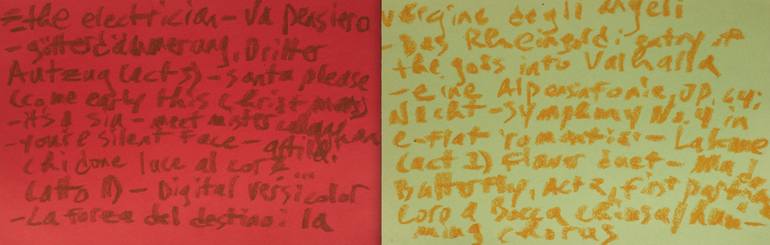 =the electrician - va pensiero
- götterdämmerung, Dritter
Aufzug (act 3) - santa please
come early this christmas)
- it's a sin - meet mister callaghan
- you're silent face - attila:
(chi done luce al cor? ...
(atto I) - Digital versicolor
- La forza del destino: la
vergine degli angeli
- Das Rheingold: entry of
the gods into Valhalla
- eine Alpensinfonie, op. 64:
Nacht - Symphony No. 4 in
e-flat 'romantic' - Lakme
(act 1) flower duet - Ma
Butterfly, Act 2, first part
coro a bocca chiusa / hum-
ming chorus